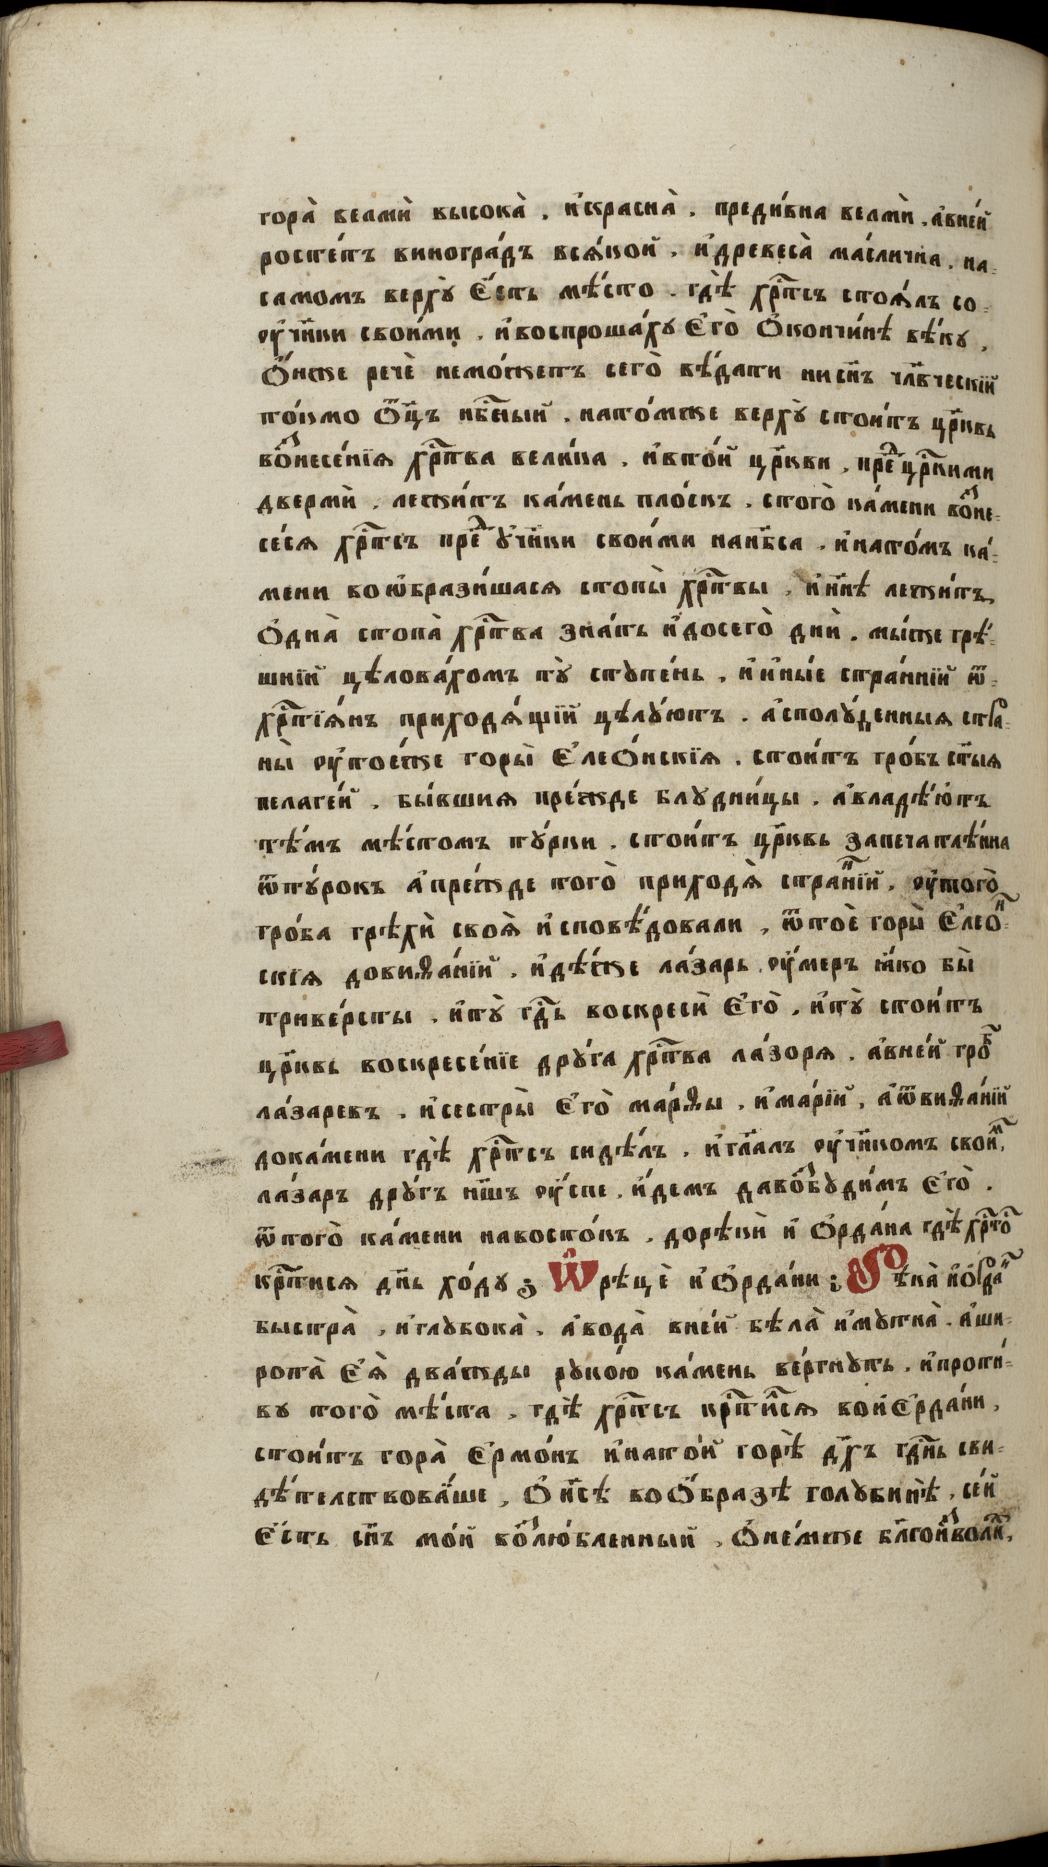 гора̀ велмѝ высока̀ . и҆красна̀ . преди́вна велмѝ . а҆вне́й
росте́тъ виногра́дъ всѧ́кой . и҆древеса̀ ма́слична . на-
самомъ верхꙋ̀ Є҆сть мѣ́сто . гдѣ̀ хрⷭ҇тсъ стоѧ́лъ со-
оу҆чн҃ки свои́ми . и҆воспроша́хꙋ Є҆го̀ Ѻ҆кончи́нѣ вѣ́кꙋ .
Ѻ҆нже речѐ немо́жетъ сего̀ вѣ́дати ни сн҃ъ чл҃вческїй
то́кмо Ѻ҆ц҃ъ нбⷭ҇ный . нато́мже верхꙋ̀ стои́тъ цр҃ковь
воⷥнесе́нїѧ хрⷭ҇това вели́ка . и҆вто́й цр҃кви . преⷣцр҃кими
двермѝ . лежи́тъ ка́мень пло́скъ . стого̀ ка́мени воⷥне-
се́сѧ хрⷭ҇тсъ преⷣ ꙋ҆чн҃ки свои́ми нанб҃са . и҆нато́мъ ка́-
мени воѡ҆брази́шасѧ стопы̀ хрⷭ҇твы . и҆нн҃ѣ лежи́тъ
Ѻ҆дна̀ стопа̀ хрⷭ҇тва зна́ть и҆досего̀ днѝ . мы́же грѣ́-
шнїй цѣлова́хомъ тꙋ̀ ступе́нь . и҆и҆ны́е стра́ннїй ѿ-
хрⷭ҇тїѧ́нъ приходѧ́щїй цѣлꙋ́ютъ . а҆сполꙋ́денныѧ стра-
ны̀ оу҆тое́же горы̀ Є҆леѺ́нскїѧ . стои́тъ гро́бъ ст҃ыѧ
пелаге́й . бы́вшиѧ пре́жде блꙋдни́цы . а҆владѣ́ютъ
тѣ́мъ мѣ́стомъ тꙋ́рки . стои́тъ цр҃ковь запечатлѣ́нна
ѿтꙋ́рокъ а҆пре́жде того̀ приходѧ̀ страⷩ҇нїй . оу҆того̀
гро́ба грѣхѝ своѧ̀ и҆сповѣ́довали , ѿтоѐ горы̀ Є҆леѻⷩ҇-
скїѧ довиѳа́нїй . и҆дѣ́же ла́зарь оу҆́меръ ꙗ҆́ко бы̀
триве́рсты . и҆тꙋ̀ гдⷭ҇ь воскресѝ Є҆го̀ . и҆тꙋ̀ стои́тъ
цр҃ковь воскресе́нїе дрꙋ́га хрⷭ҇това ла́зорѧ . а҆вне́й гроⷠ
ла́заревъ . и҆сестры̀ Є҆го̀ ма́рѳы . и҆ма́рїй , а҆ѿвиѳа́нїй
дока́мени гдѣ̀ хрⷭ҇тсъ сидѣ́лъ . и҆гл҃алъ оу҆чн҃комъ своиⷨ ,
ла́заръ дрꙋ́гъ нш҃ъ оу҆́спе . и҆́демъ давоⷥбꙋди́мъ Є҆го̀ .
ѿтого̀ ка́мени навосто́къ . дорѣкѝ и҆Ѻ҆рда́на гдѣ̀хрⷭ҇то́
крⷭ҇тисѧ дн҃ь хо́дꙋ ; Ѡ҆рѣцѐ и҆Ѻ҆рда́ни ; Рѣка̀ и҆Ѻ҆рдаⷩ҇
быстра̀ , и҆глꙋбока̀ . а҆вода̀ вне́й бѣла̀ и҆мꙋтна̀ . а҆ши-
рота̀ Є҆ѧ̀ два́жды рꙋко́ю ка́мень ве́ргнꙋть . и҆проти́-
вꙋ того̀ мѣ́ста . гдѣ̀ хрⷭ҇тсъ крⷭ҇ти́лсѧ воиє҆рда́ни ,
стои́тъ гора̀ Є҆рмо́нъ и҆нато́й горѣ̀ дх҃ъ гдⷭ҇нь сви-
дѣ́телствова́ше , Ѻ҆ и҆сѣ воѺ́бразѣ голꙋби́нѣ . се́й
Є҆́сть сн҃ъ мо́й воⷥлю́бленный . Ѻ҆не́мже бл҃гоиⷥволи́хъ .